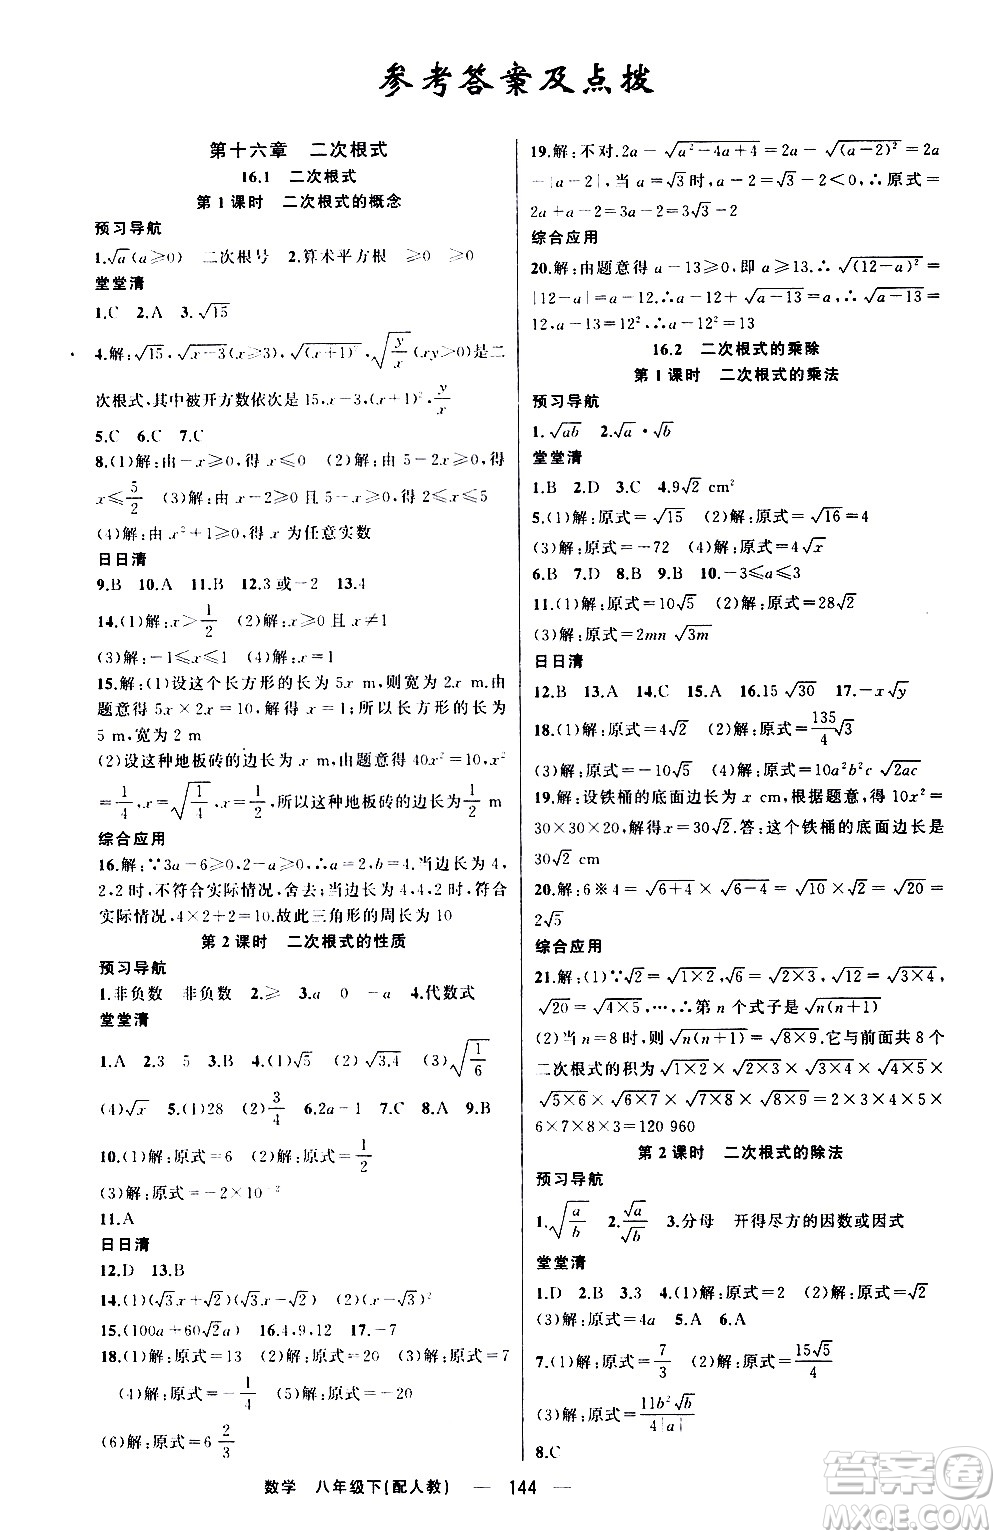 参考答案及点拨
第十六章 二次根式
16.1 二次根式
第1课时 二次根式的概念
预习导航
1.√a(a≥0) 二次根号 2.算术平方根 ≥0 ≥0
堂堂清
1.C 2.A 3.√15
4.解:√15,√(x-3)(x≥3),√((x+1)²),√(y/x)(xy≥0)是二
次根式,其中被开方数依次是15,x-3,(x+1)²,y/x
5.C 6.C 7.C
8.(1)解:由-x≥0,得x≤0 (2)解:由5-2x≥0,得
x≤5/2 (3)解:由x-2≥0且5-x≥0,得2≤x≤5
(4)解:由x²+1≥0,得x为任意实数
日日清
9.B 10.A 11.B 12.3或-2 13.4
14.(1)解:x>1/2 (2)解:x≥0且x≠1
(3)解:-1≤x≤1 (4)解:x=1
15.解:(1)设这个长方形的长为5x m,则宽为2x m.由
题意得5x×2x=10,解得x=1;所以长方形的长为
5 m,宽为2 m
(2)设这种地板砖的边长为x m,由题意得40x²=10,x²
=1/4,x=√(1/4)=1/2,所以这种地板砖的边长为1/2 m
综合应用
16.解:∵3a-6≥0,2-a≥0,∴a=2,b=4.当边长为4,
2,2时,不符合实际情况,舍去;当边长为4,4,2时,符合
实际情况,4×2+2=10.故此三角形的周长为10
第2课时 二次根式的性质
预习导航
1.非负数 非负数 2.≥ 3.a 0 -a 4.代数式
堂堂清
1.A 2.3 5 3.B 4.(1)√5 (2)√3.4 (3)√(1/6)
(4)√x 5.(1)28 (2)3/4 6.2a-1 7.C 8.A 9.B
10.(1)解:原式=6 (2)解:原式=1/2
(3)解:原式=-2×10⁻²
11.A
日日清
12.D 13.B
14.(1)(√3x+√2)(√3x-√2) (2)(x-√3)²
15.(100a+60√2a) 16.4,9,12 17.-7
18.(1)解:原式=13 (2)解:原式=20 (3)解:原式=7
(4)解:原式=-1/4 (5)解:原式=-20
(6)解:原式=6 2/3
19.解:不对.2a-√(a²-4a+4)=2a-√((a-2)²)=2a
-|a-2|,当a=√3时,a-2=√3-2<0,∴原式=
2a+a-2=3a-2=3√3-2
综合应用
20.解:由题意得a-13≥0,即a≥13.∴√((12-a)²)=
|12-a|=a-12.∴a-12+√(a-13)=a,∴√(a-13)=
12,a-13=12²,∴a-12²=13
16.2 二次根式的乘除
第1课时 二次根式的乘法
预习导航
1.√ab 2.√a·√b
堂堂清
1.B 2.D 3.C 4.9√2 cm²
5.(1)解:原式=√15 (2)解:原式=√16=4
(3)解:原式=-72 (4)解:原式=4√x
6.B 7.D 8.B 9.B 10.-3≤a≤3
11.(1)解:原式=10√5 (2)解:原式=28√2
(3)解:原式=2mn√3m
日日清
12.B 13.A 14.C 15.A 16.15√30 17.-x√y
18.(1)解:原式=4√2 (2)解:原式=135/4√2
(3)解:原式=-10√2 (4)解:原式=10a²b²c√2ac
19.解:设铁桶的底面边长为x cm,根据题意,得10x²=
30×30×20,解得x=30√2.答:这个铁桶的底面边长是
30√2 cm
20.解:6※4=√(6+4)×√(6-4)=√10×√2=√20=
2√5
综合应用
21.解:(1)∵√2=√(1×2),√6=√(2×3),√12=√(3×4),
√20=√(4×5),…,∴第n个式子是√(n(n+1))
(2)当n=8时,则√(n(n+1))=√(8×9).它与前面共8个
二次根式的积为√(1×2)×√(2×3)×√(3×4)×√(4×5)×
√(5×6)×√(6×7)×√(7×8)×√(8×9)=2×3×4×5×
6×7×8×3=120 960
第2课时 二次根式的除法
预习导航
1.√(a/b) 2.√a/√b 3.分母 开得尽方的因数或因式
堂堂清
1.D 2.B 3.3 4.(1)解:原式=2 (2)解:原式=2√3
(3)解:原式=4a 5.A 6.A
7.(1)解:原式=7/3 (2)解:原式=15√5/4
(3)解:原式=11b²√b/4|a|
8.C
数学 八年级下(配人教) — 144 —
答案圈
MXQE.COM